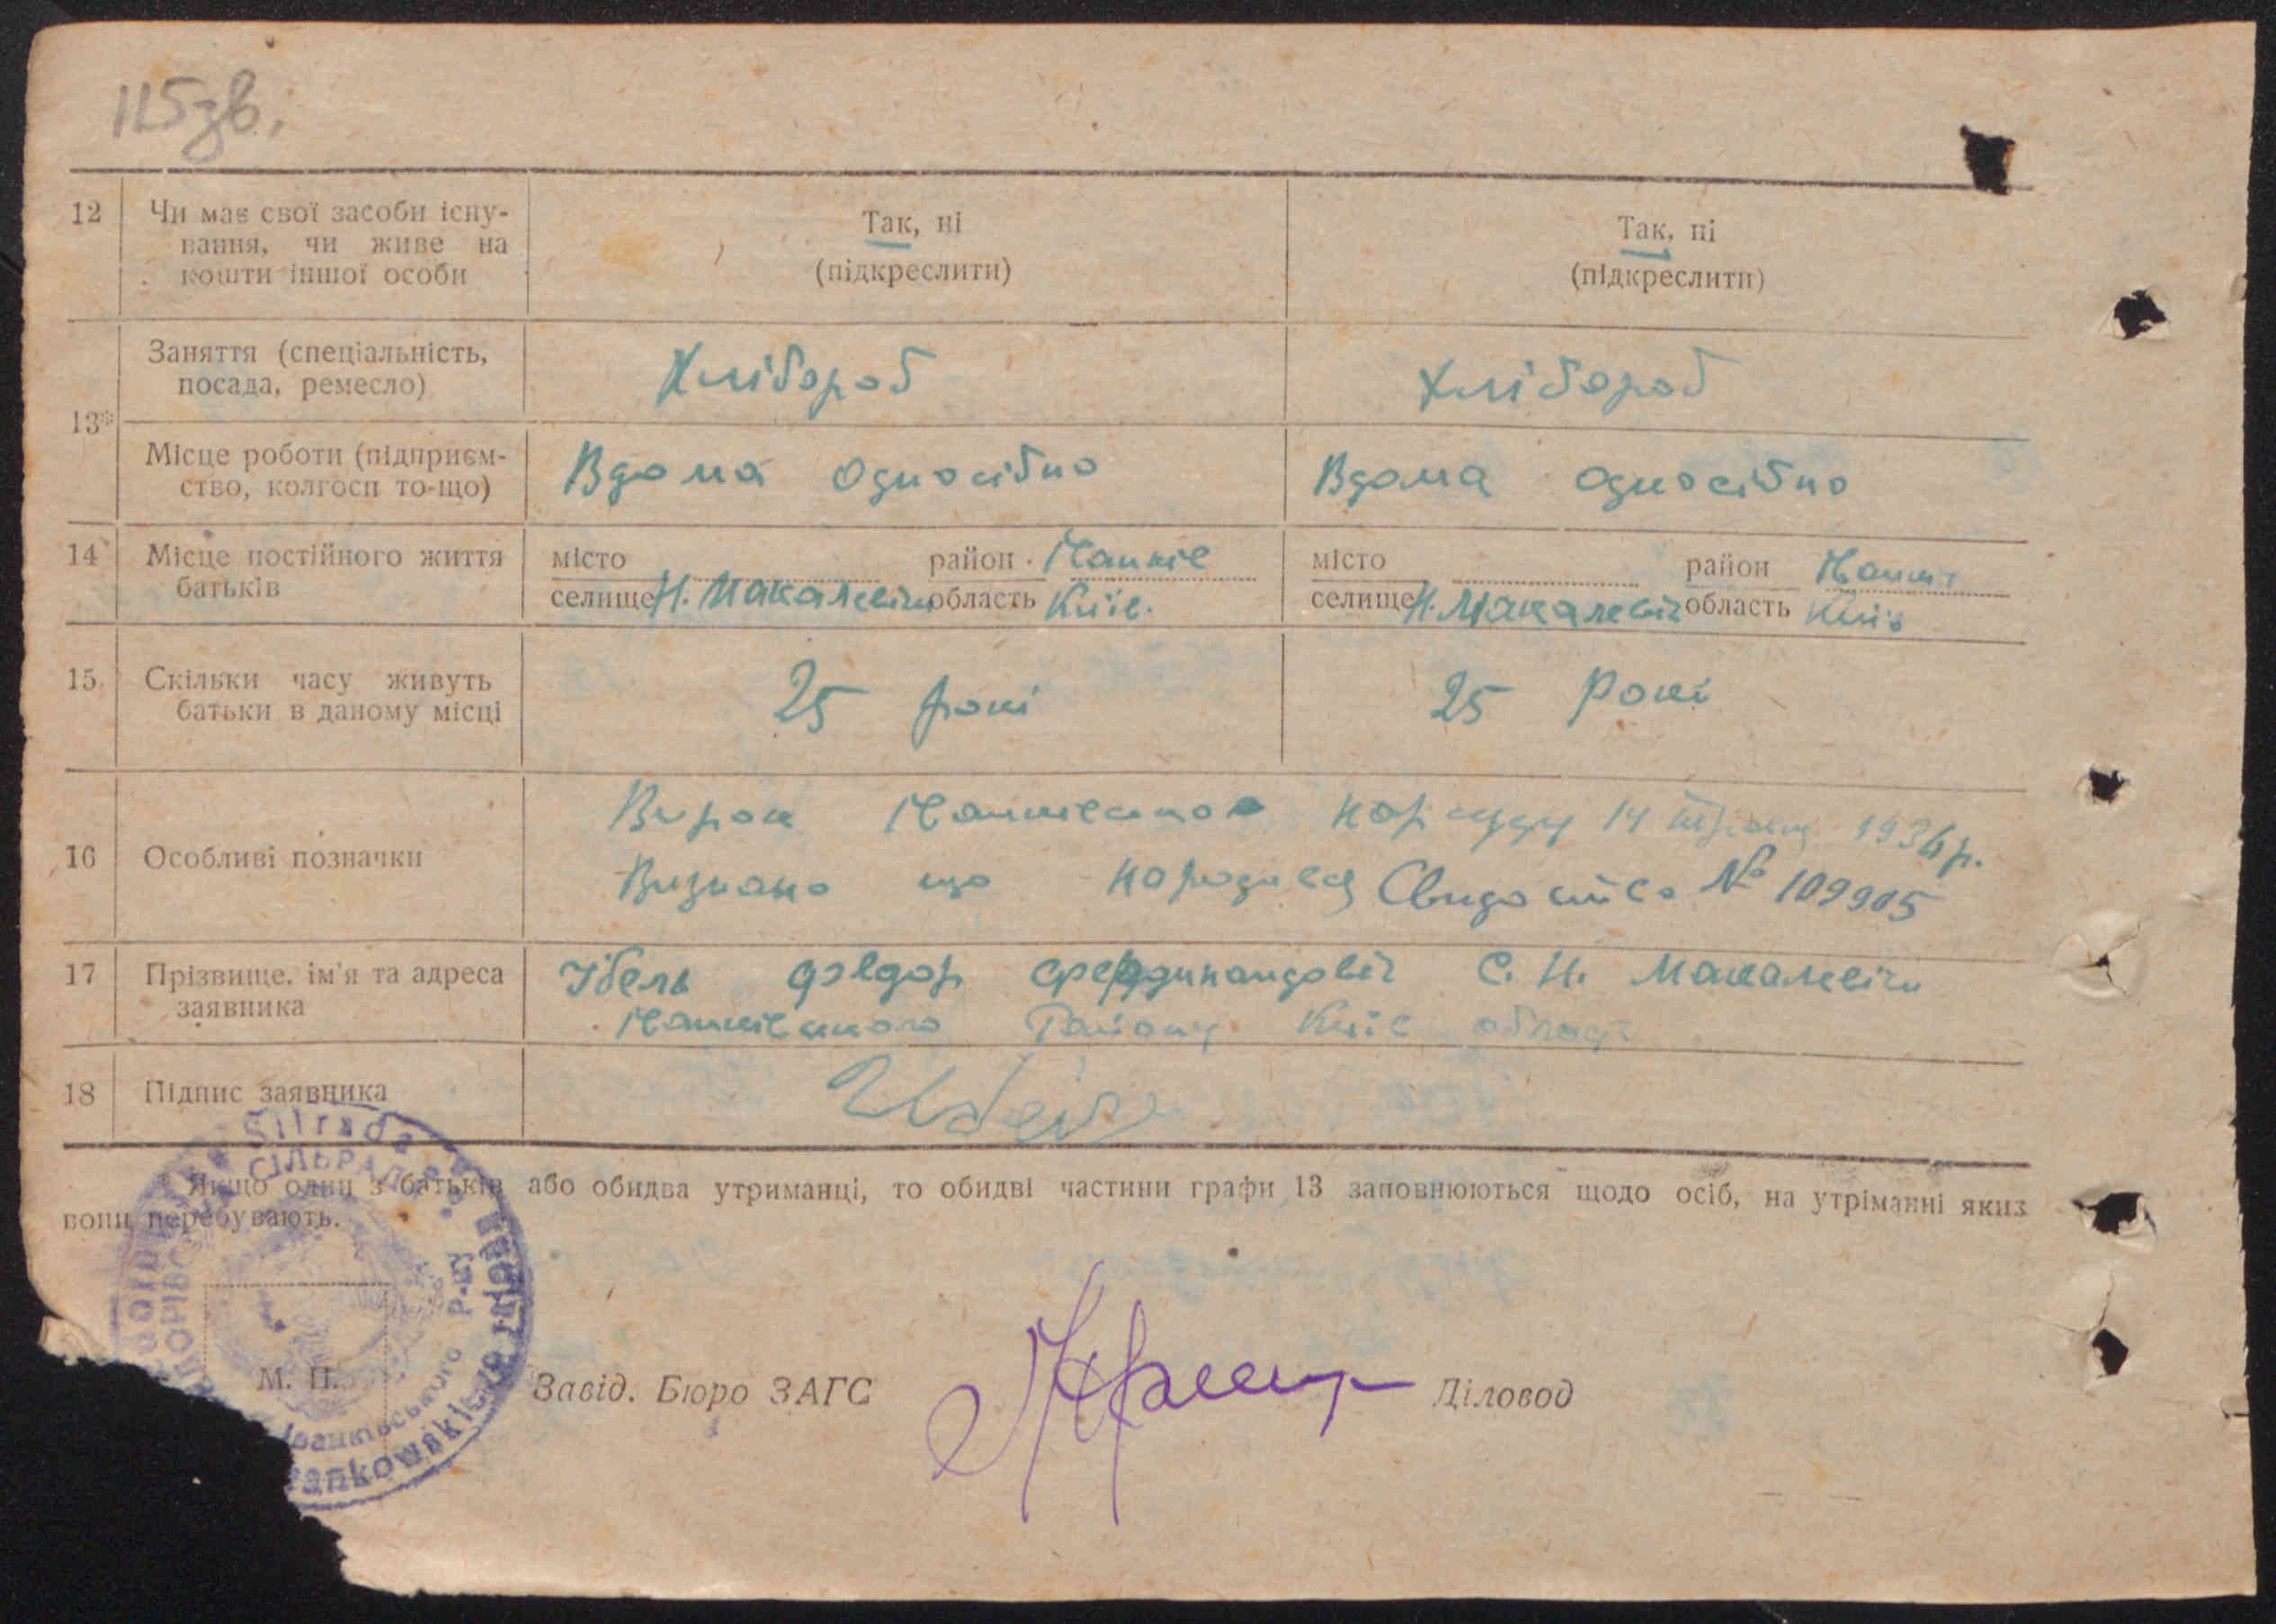 115зв.
12 Чи має свої засоби існу-
вання, чи живе на
кошти іншої особи
Так, ні
(підкреслити)
Так, ні
(підкреслити)
13*
Заняття (спеціальність,
посада, ремесло)
Хлібороб
Хлібороб
Місце роботи (підприєм-
ство, колгосп то-що)
Вдома односібно
Вдома односібно
14 Місце постійного життя
батьків
місто район
селище Н. Макалевічи область Київ.
місто район
селище Н. Макалевіч область Київ
15 Скільки часу живуть
батьки в даному місці
25 рокі
25 Рокі
16 Особливі позначки
Вирок нарсуду 14 1936 р.
Визнано що народився Свидоцтво № 109905
17 Прізвище, ім'я та адреса
заявника
Ібель Фэвдор Фердинандовіч С. Н. Макалевічи
Району Київ області
18 Підпис заявника
Silrada
СІЛЬРАДА
* Якщо один з батьків або обидва утриманці, то обидві частини графи 13 заповнюються щодо осіб, на утріманні яких
вони перебувають.
М. П.
Р-ну
ankowskiego rajonu
Завід. Бюро ЗАГС
Діловод